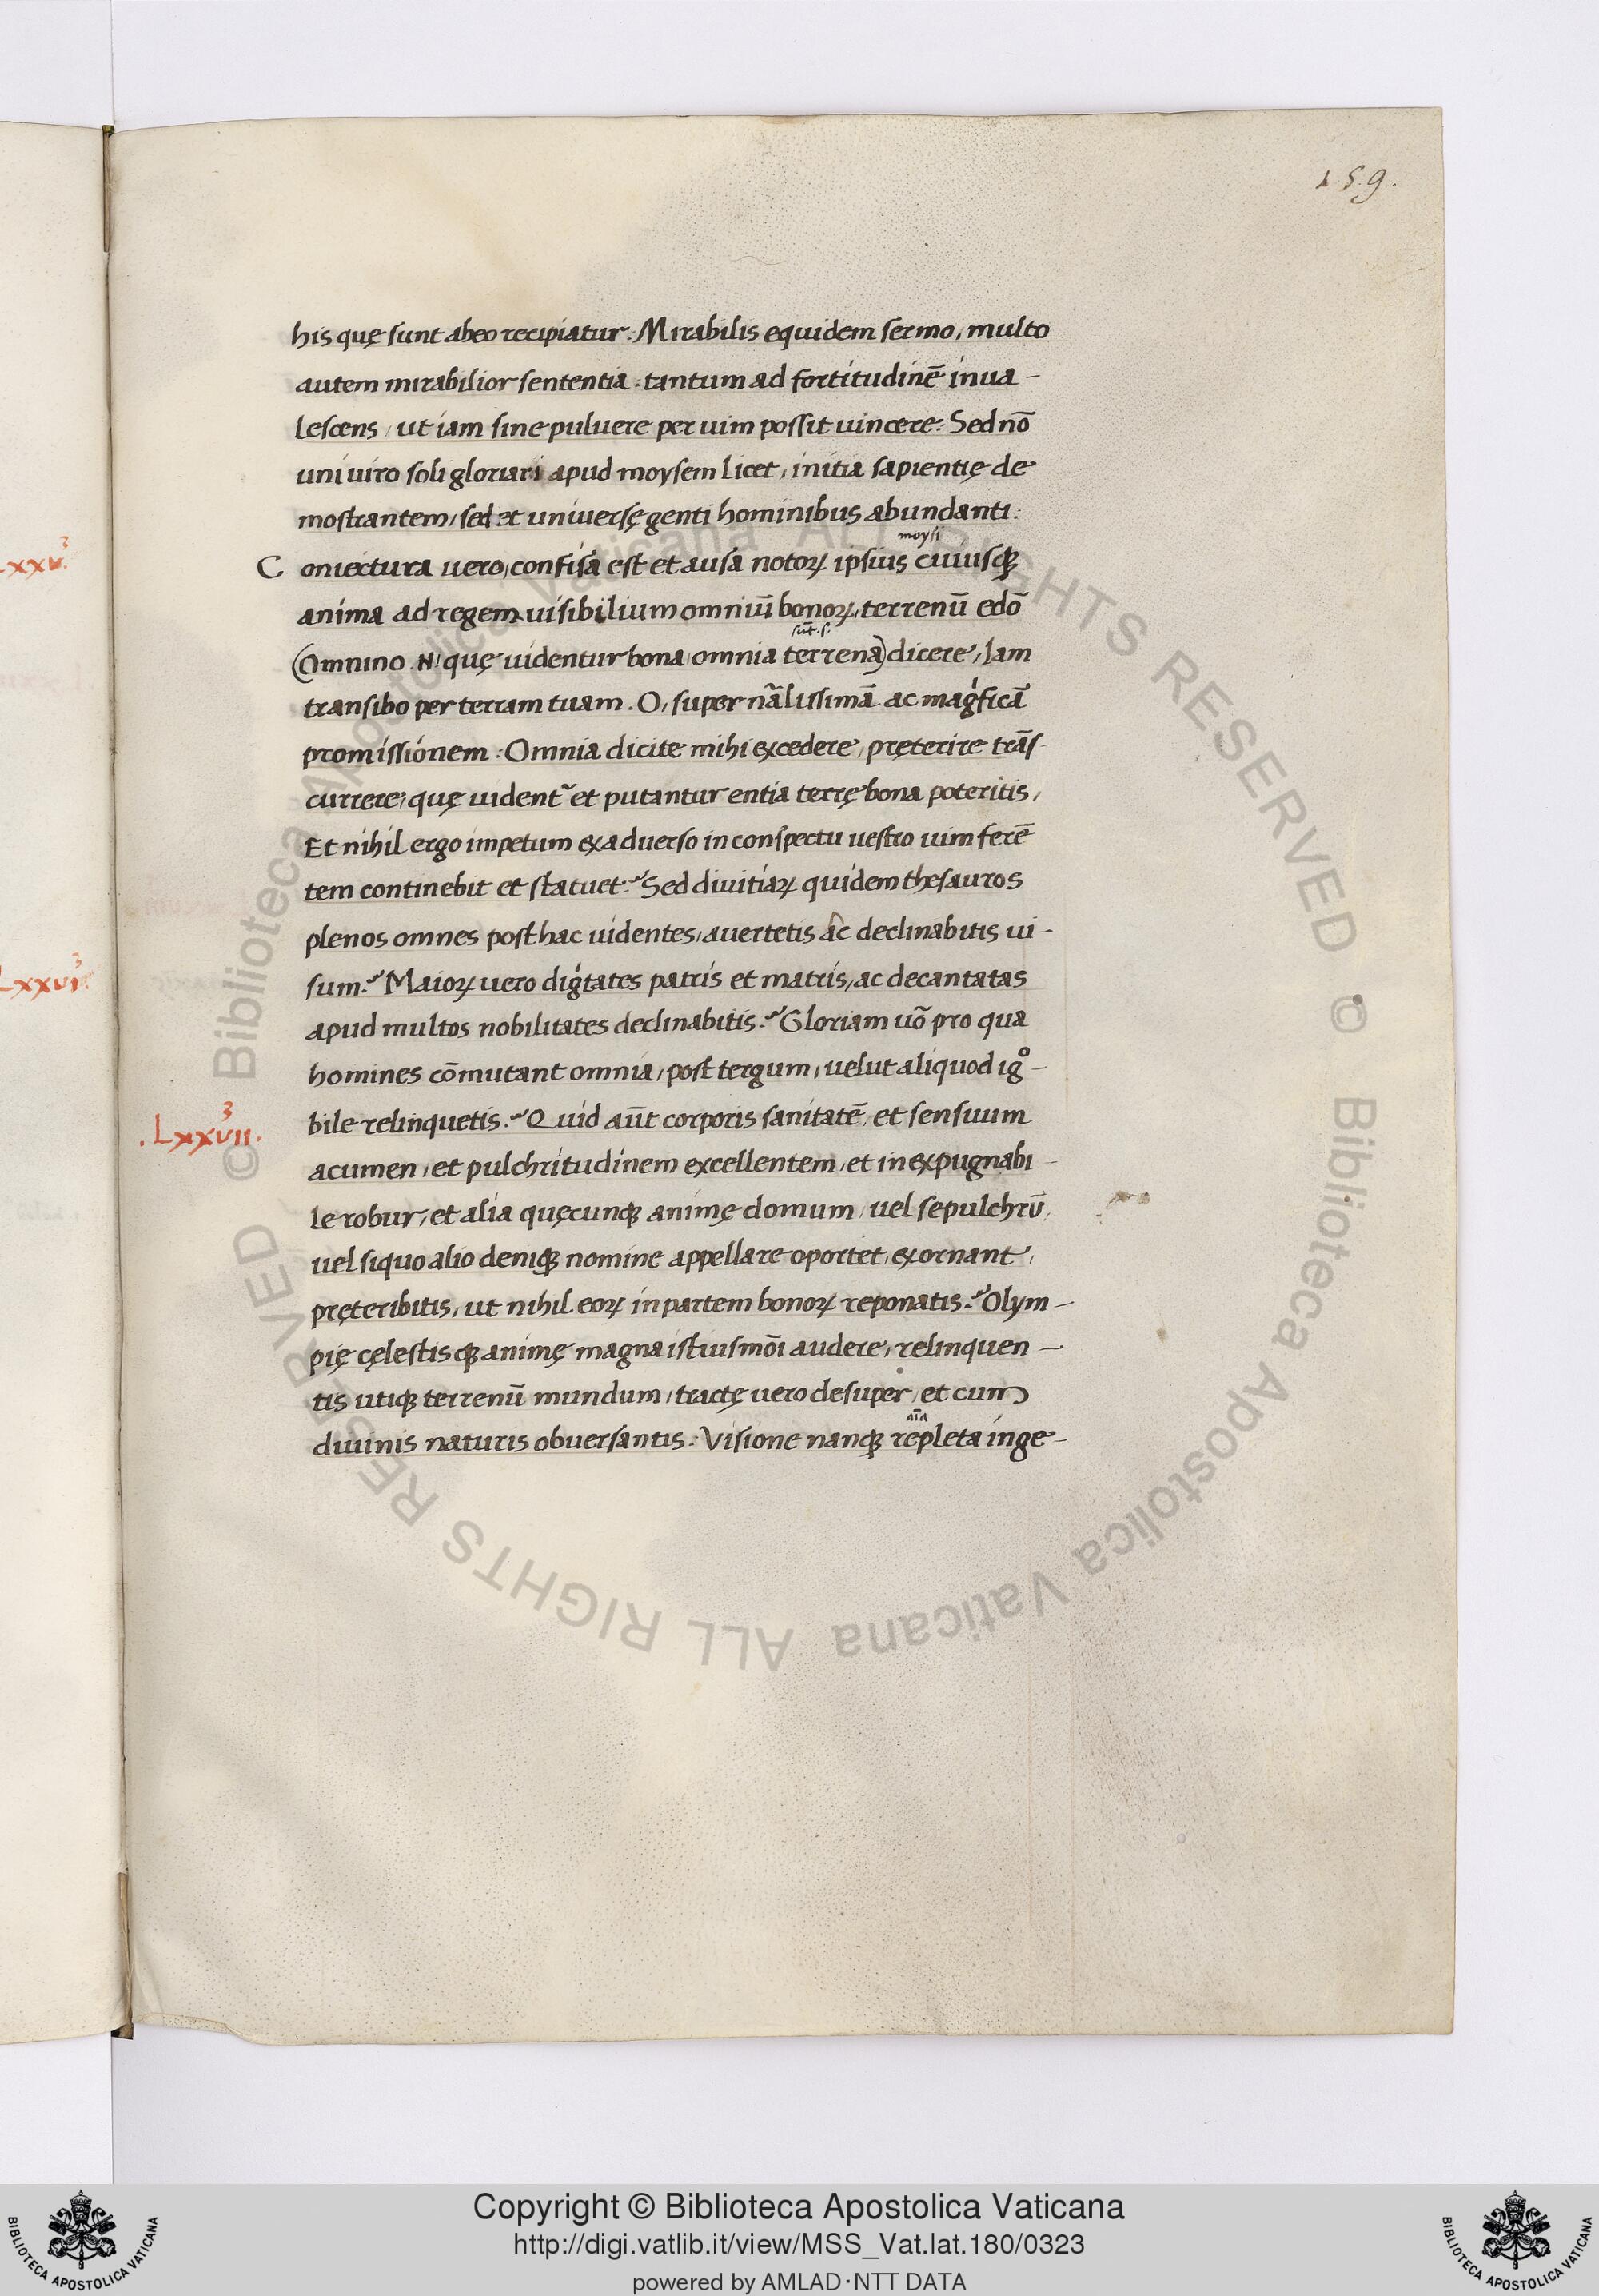 159.
his quę sunt ab eo recipiatur. Mirabilis equidem sermo, multo
autem mirabilior sententia. tantum ad fortitudinē inua-
lescens, ut iam sine puluere per uim possit uincere. Sed nō
uni uiro soli gloriari apud moysem licet, initia sapientię de
mostrantem, sed et uniuersę genti hominibus abundanti.
moysi
Coniectura uero, confisa est et ausa notoꝝ ipsius cuiusqꝫ
anima ad regem uisibilium omniū bonoꝝ, terrenū edō
sūt .s.
(Omnino .N. quę uidentur bona omnia terrena) dicere, Iam
transibo per terram tuam. O, super nālissimā ac magͥficā
promissionem. Omnia dicite mihi excedere, pręterire trās-
currere, quę uident᷑ et putantur entia terrę bona poteritis,
Et nihil ergo impetum ex aduerso in conspectu uestro uim ferē
tem continebit et statuet. Sed diuitiaꝝ quidem thesauros
plenos omnes post hac uidentes, auertetis ac declinabitis ui-
sum. Maioꝝ uero digͥtates patris et matris, ac decantatas
apud multos nobilitates declinabitis. Gloriam uō pro qua
homines cōmutant omnia, post tergum, uelut aliquod igͦ-
.LXXVII.
3
bile relinquetis. Quid aūt corporis sanitatē, et sensuum
acumen, et pulchritudinem excellentem, et inexpugnabi-
le robur, et alia quęcunqꝫ animę domum, uel sepulchrū,
uel si quo alio deniqꝫ nomine appellare oportet, exornant,
pręteribitis, ut nihil eoꝝ in partem bonoꝝ reponatis. Olym-
pię cęlestisqꝫ animę magna istiusmōi audere, relinquen-
tis utiqꝫ terrenū mundum, tractę uero desuper, et cum
aīa
diuinis naturis obuersantis. Visione nanqꝫ repleta inge-
LXXV.
3
LXXVI.
3
© Biblioteca Apostolica Vaticana ALL RIGHTS RESERVED © Biblioteca Apostolica Vaticana ALL RIGHTS RESERVED
Copyright © Biblioteca Apostolica Vaticana
http://digi.vatlib.it/view/MSS_Vat.lat.180/0323
powered by AMLAD·NTT DATA
BIBLIOTECA APOSTOLICA VATICANA
BIBLIOTECA APOSTOLICA VATICANA